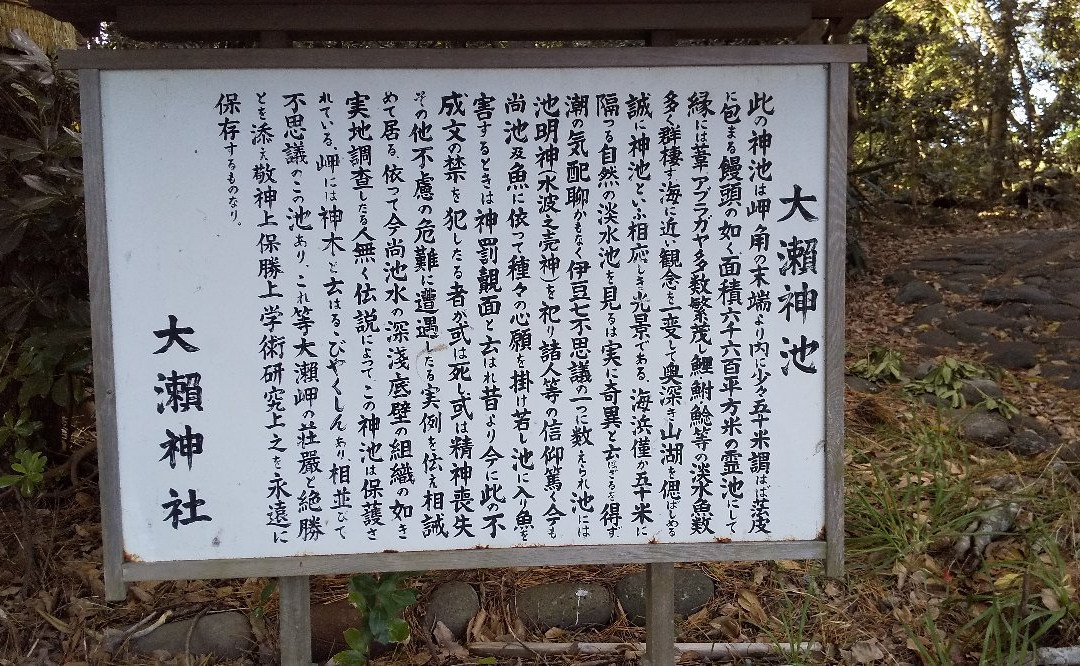 大瀬神池
此の神池は岬角の末端より内に少々五十米謂はば莢度
に包まる饅頭の如く面積六千六百平方米の霊池にして
縁には葦アブラガヤ多数繁茂し鯉鮒鯰等の淡水魚数
多く群棲す海に近い観念を一変して奥深き山湖を偲ばしめる
誠に神池といふ相応しき光景である、海浜僅か五十米に
隔つる自然の淡水池を見るは実に奇異と云はざるを得ず、
潮の気配聊かもなく伊豆七不思議の一つに数えられ池には
池明神(水波之売神)を祀り諸人等の信仰篤く今も
尚池及魚に依って種々の心願を掛け若し池に入り魚を
害するときは神罰覿面と云はれ昔より今に此の不
成文の禁を犯したる者か或は死し或は精神喪失
その他不慮の危難に遭遇したる実例を伝え相誡
めて居る、依って今尚池水の深淺底壁の組織の如き
実地調査したる人無く伝説によってこの神池は保護さ
れている、岬には神木と云はるゝびやくしんあり相並びて
不思議のこの池あり、これ等大瀬岬の荘厳と絶勝
とを添え敬神上保勝上学術研究上之を永遠に
保存するものなり。
大瀬神社